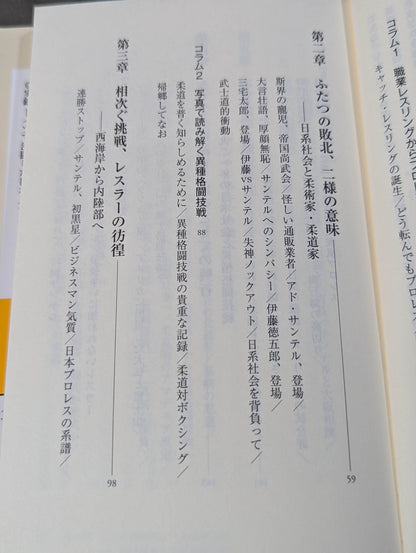 コラム1 職業レスリングからプロレ
キャッチ・レスリングの誕生／どう転んでもプロレス
第二章 ふたつの敗北、二様の意味 59
――日系社会と柔術家・柔道家
斯界の寵児、帝国尚武会／怪しい通販業者／アド・サンテル、登場／
大言壮語、厚顔無恥／サンテルへのシンパシー／伊藤徳五郎、登場／
三宅太郎、登場／伊藤vsサンテル／失神ノックアウト／日系社会を背負って／
武士道的衝動
コラム2 写真で読み解く異種格闘技戦 88
柔道を普く知らしめるために／異種格闘技戦の貴重な記録／柔道対ボクシング／
帰郷してなお
第三章 相次ぐ挑戦、レスラーの彷徨 98
――西海岸から内陸部へ
連勝ストップ／サンテル、初黒星／ビジネスマン気質／日本プロレスの系譜／